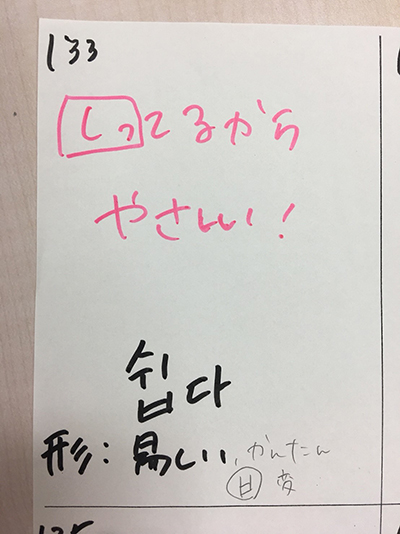 133
しってるから
やさしい!
쉽다
形:易しい、かんたん
ㅂ変